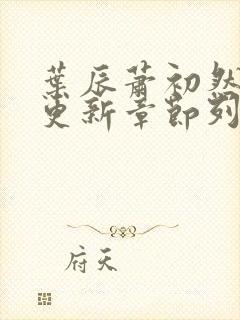 葉辰蕭初然
更新章節列
府天